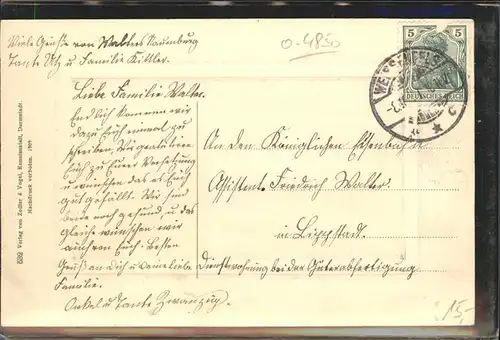 Viele Grüße von Walters Naumburg
Tante Utz u Familie Kittler.
0-4850
5 5
DEUTSCHES REICH
WEISSENFELS
Liebe Familie Walter.
Endlich kommen wir
dazu Euch einmal zu
schreiben. Wir gratulieren
Euch zu Eurer Versetzung
u wünschen das es Euch
gut gefällt. Wir sind
beide noch gesund, u das
gleiche wünschen wir
auch von Euch. Besten
Gruß an Dich u Deine liebe
Familie.
Onkel u Tante Zwanzig.
An den Königlichen Eisenbahn
Assistent. Friedrich Walter.
in Lippstadt.
Dienstwohnung bei der Güterabfertigung
5392 Verlag von Zedler & Vogel, Kunstanstalt, Darmstadt.
Nachdruck verboten. 1908
15,-